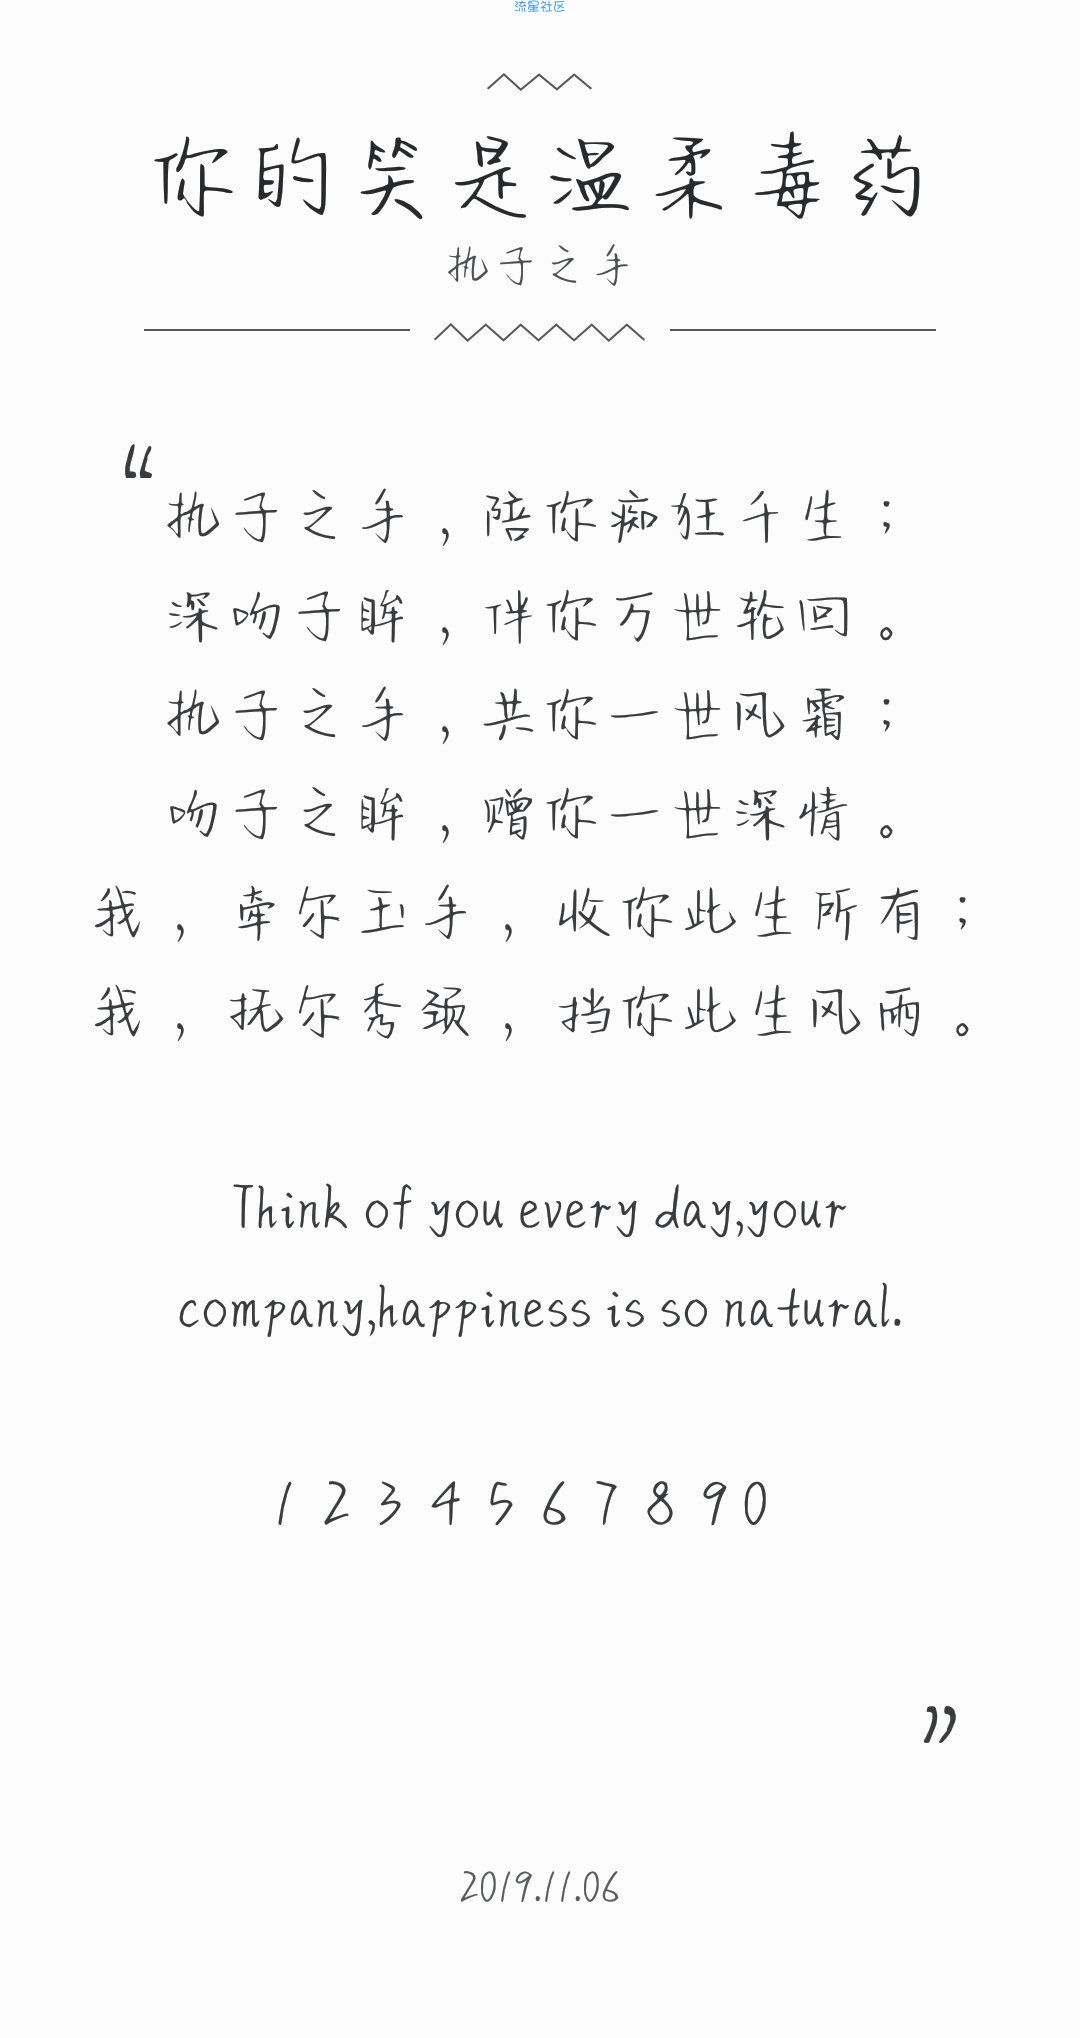 流星社区
你的笑是温柔毒药
执子之手
“
执子之手，陪你痴狂千生；
深吻子眸，伴你万世轮回。
执子之手，共你一世风霜；
吻子之眸，赠你一世深情。
我，牵尔玉手，收你此生所有；
我，抚尔秀颈，挡你此生风雨。
Think of you every day,your
company,happiness is so natural.
1 2 3 4 5 6 7 8 9 0
”
2019.11.06